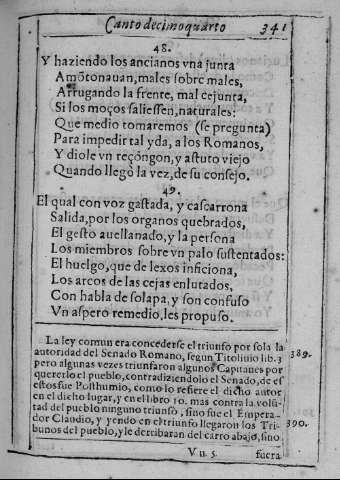 Canto decimoquarto 341
48.
Y haziendo los ancianos vna junta
Amõtonauan, males sobre males,
Arrugando la frente, mal cejunta,
Si los moços saliessen, naturales:
Que medio tomaremos (se pregunta)
Para impedir tal yda, a los Romanos,
Y diole vn reçõngon, y astuto viejo
Quando llegò la vez, de su consejo.
49.
El qual con voz gastada, y cascarrona
Salida, por los organos quebrados,
El gesto auellanado, y la persona
Los miembros sobre vn palo sustentados:
El huelgo, que de lexos inficiona,
Los arcos de las cejas enlutados,
Con habla de solapa, y son confuso
Vn aspero remedio, les propuso.
La ley comun era concederse el triunfo por sola la
autoridad del Senado Romano, segun Titoliuio lib. 3 389.
pero algunas vezes triunfaron algunos Capitanes por
quererlo el pueblo, contradiziendolo el Senado, de es
estos fue Posthumio, como lo refiere el dicho autor
en el dicho lugar, y en el libro 10. mas contra la volũ-
tad del pueblo ninguno triunfò, sino fue el Empera-
dor Claudio, y yendo en el triunfo llegaron los Tri- 390.
bunos del pueblo, y le derribaran del carro abajo, sino
Vu 5. fuera